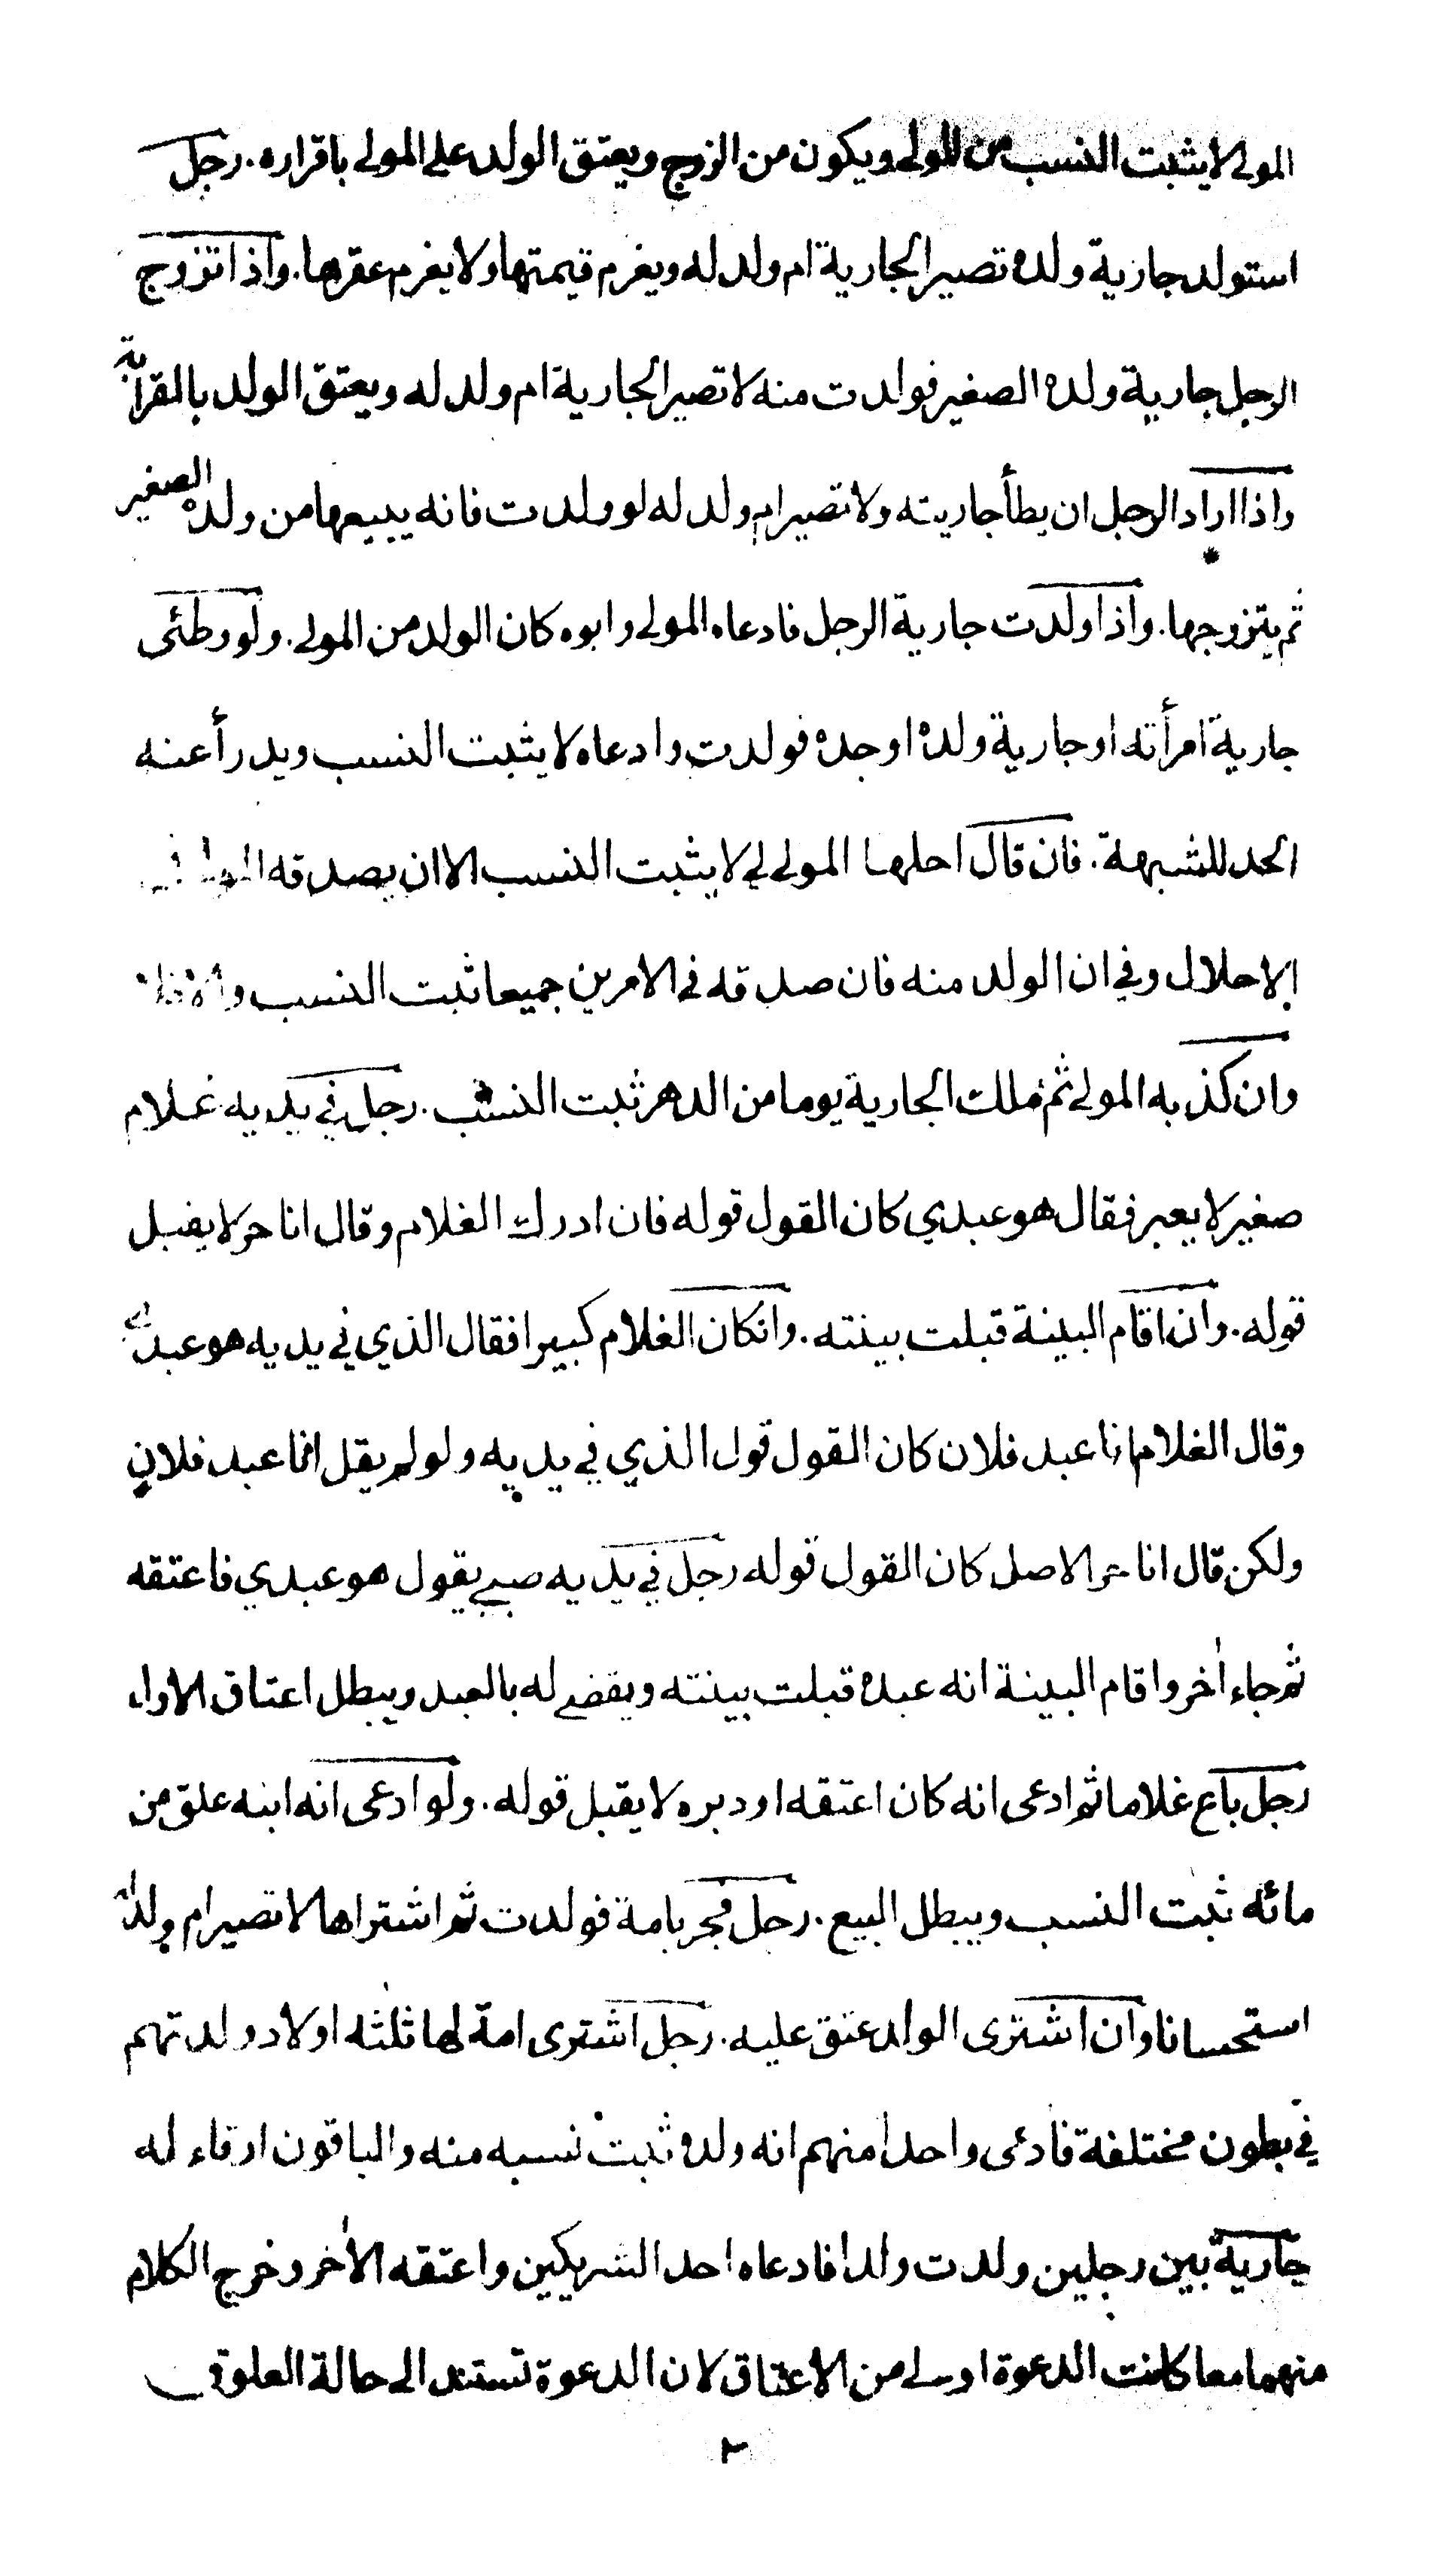 المولى لا يثبت النسب من المولى ويكون من الزوج ويعتق الولد على المولى باقراره. رجل
استولد جارية ولده تصير الجارية ام ولد له ويغرم قيمتها ولا يغرم عقرها. واذا تزوج
الرجل جارية ولده الصغير فولدت منه لا تصير الجارية ام ولد له ويعتق الولد بالقرابة
واذا اراد الرجل ان يطأ جاريته ولا تصير ام ولد له لو ولدت فانه يبيعها من ولده الصغير
ثم يتزوجها. واذا ولدت جارية الرجل فادعاه المولى وابوه كان الولد من المولى. ولو وطئى
جارية امرأته او جارية ولده او جده فولدت وادعاه لا يثبت النسب ويدرأ عنه
الحد للشبهة. فان قال احلها المولى لي لا يثبت النسب الا ان يصدقه المولى في
الاحلال وفي ان الولد منه فان صدقه في الامرين جميعا ثبت النسب والا فلا
وان كذبه المولى ثم ملك الجارية يوما من الدهر ثبت النسب. رجل في يديه غلام
صغير لا يعبر فقال هو عبدي كان القول قوله فان ادرك الغلام وقال انا حر لا يقبل
قوله. وان اقام البينة قبلت بينته. وانكان الغلام كبيرا فقال الذي في يديه هو عبدي
وقال الغلام انا عبد فلان كان القول قول الذي في يديه ولو لم يقل انما عبد فلان
ولكن قال انا حر الاصل كان القول قوله رجل في يديه صبي يقول هو عبدي فاعتقه
ثم جاء اٰخر واقام البينة انه عبده قبلت بينته ويقضى له بالعبد ويبطل اعتاق الاول
رجل باع غلاما ثم ادعى انه كان اعتقه او دبره لا يقبل قوله. ولو ادعى انه ابنه علق من
مائه ثبت النسب ويبطل البيع. رجل فجر بامة فولدت ثم اشتراها لا تصير ام ولد له
استحسانا وان اشترى الولد عتق عليه. رجل اشترى امة لها ثلثه اولاد ولدتهم
في بطون مختلفة فادعى واحدا منهم انه ولده ثبت نسبه منه والباقون ارقاء له
جارية بين رجلين ولدت ولدا فادعاه احد الشريكين واعتقه الاٰخر وخرج الكلام
منهما معا كانت الدعوة اولى من الاعتاق لان الدعوة تستند الى حالة العلوق
٢